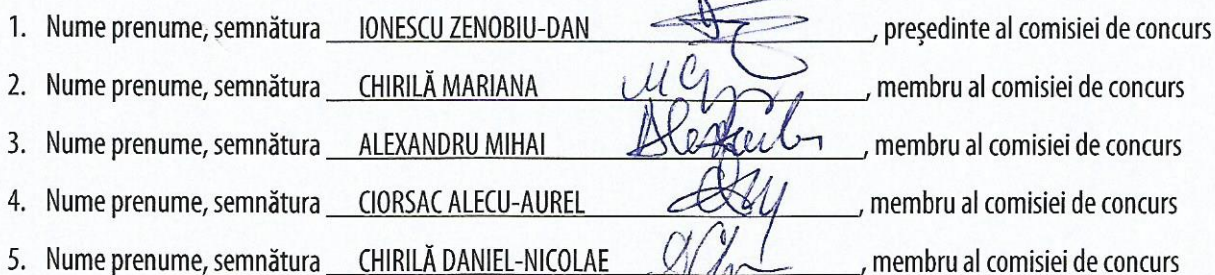 1. Nume prenume, semnătura IONESCU ZENOBIU-DAN, președinte al comisiei de concurs
2. Nume prenume, semnătura CHIRILĂ MARIANA, membru al comisiei de concurs
3. Nume prenume, semnătura ALEXANDRU MIHAI, membru al comisiei de concurs
4. Nume prenume, semnătura CIORSAC ALECU-AUREL, membru al comisiei de concurs
5. Nume prenume, semnătura CHIRILĂ DANIEL-NICOLAE, membru al comisiei de concurs